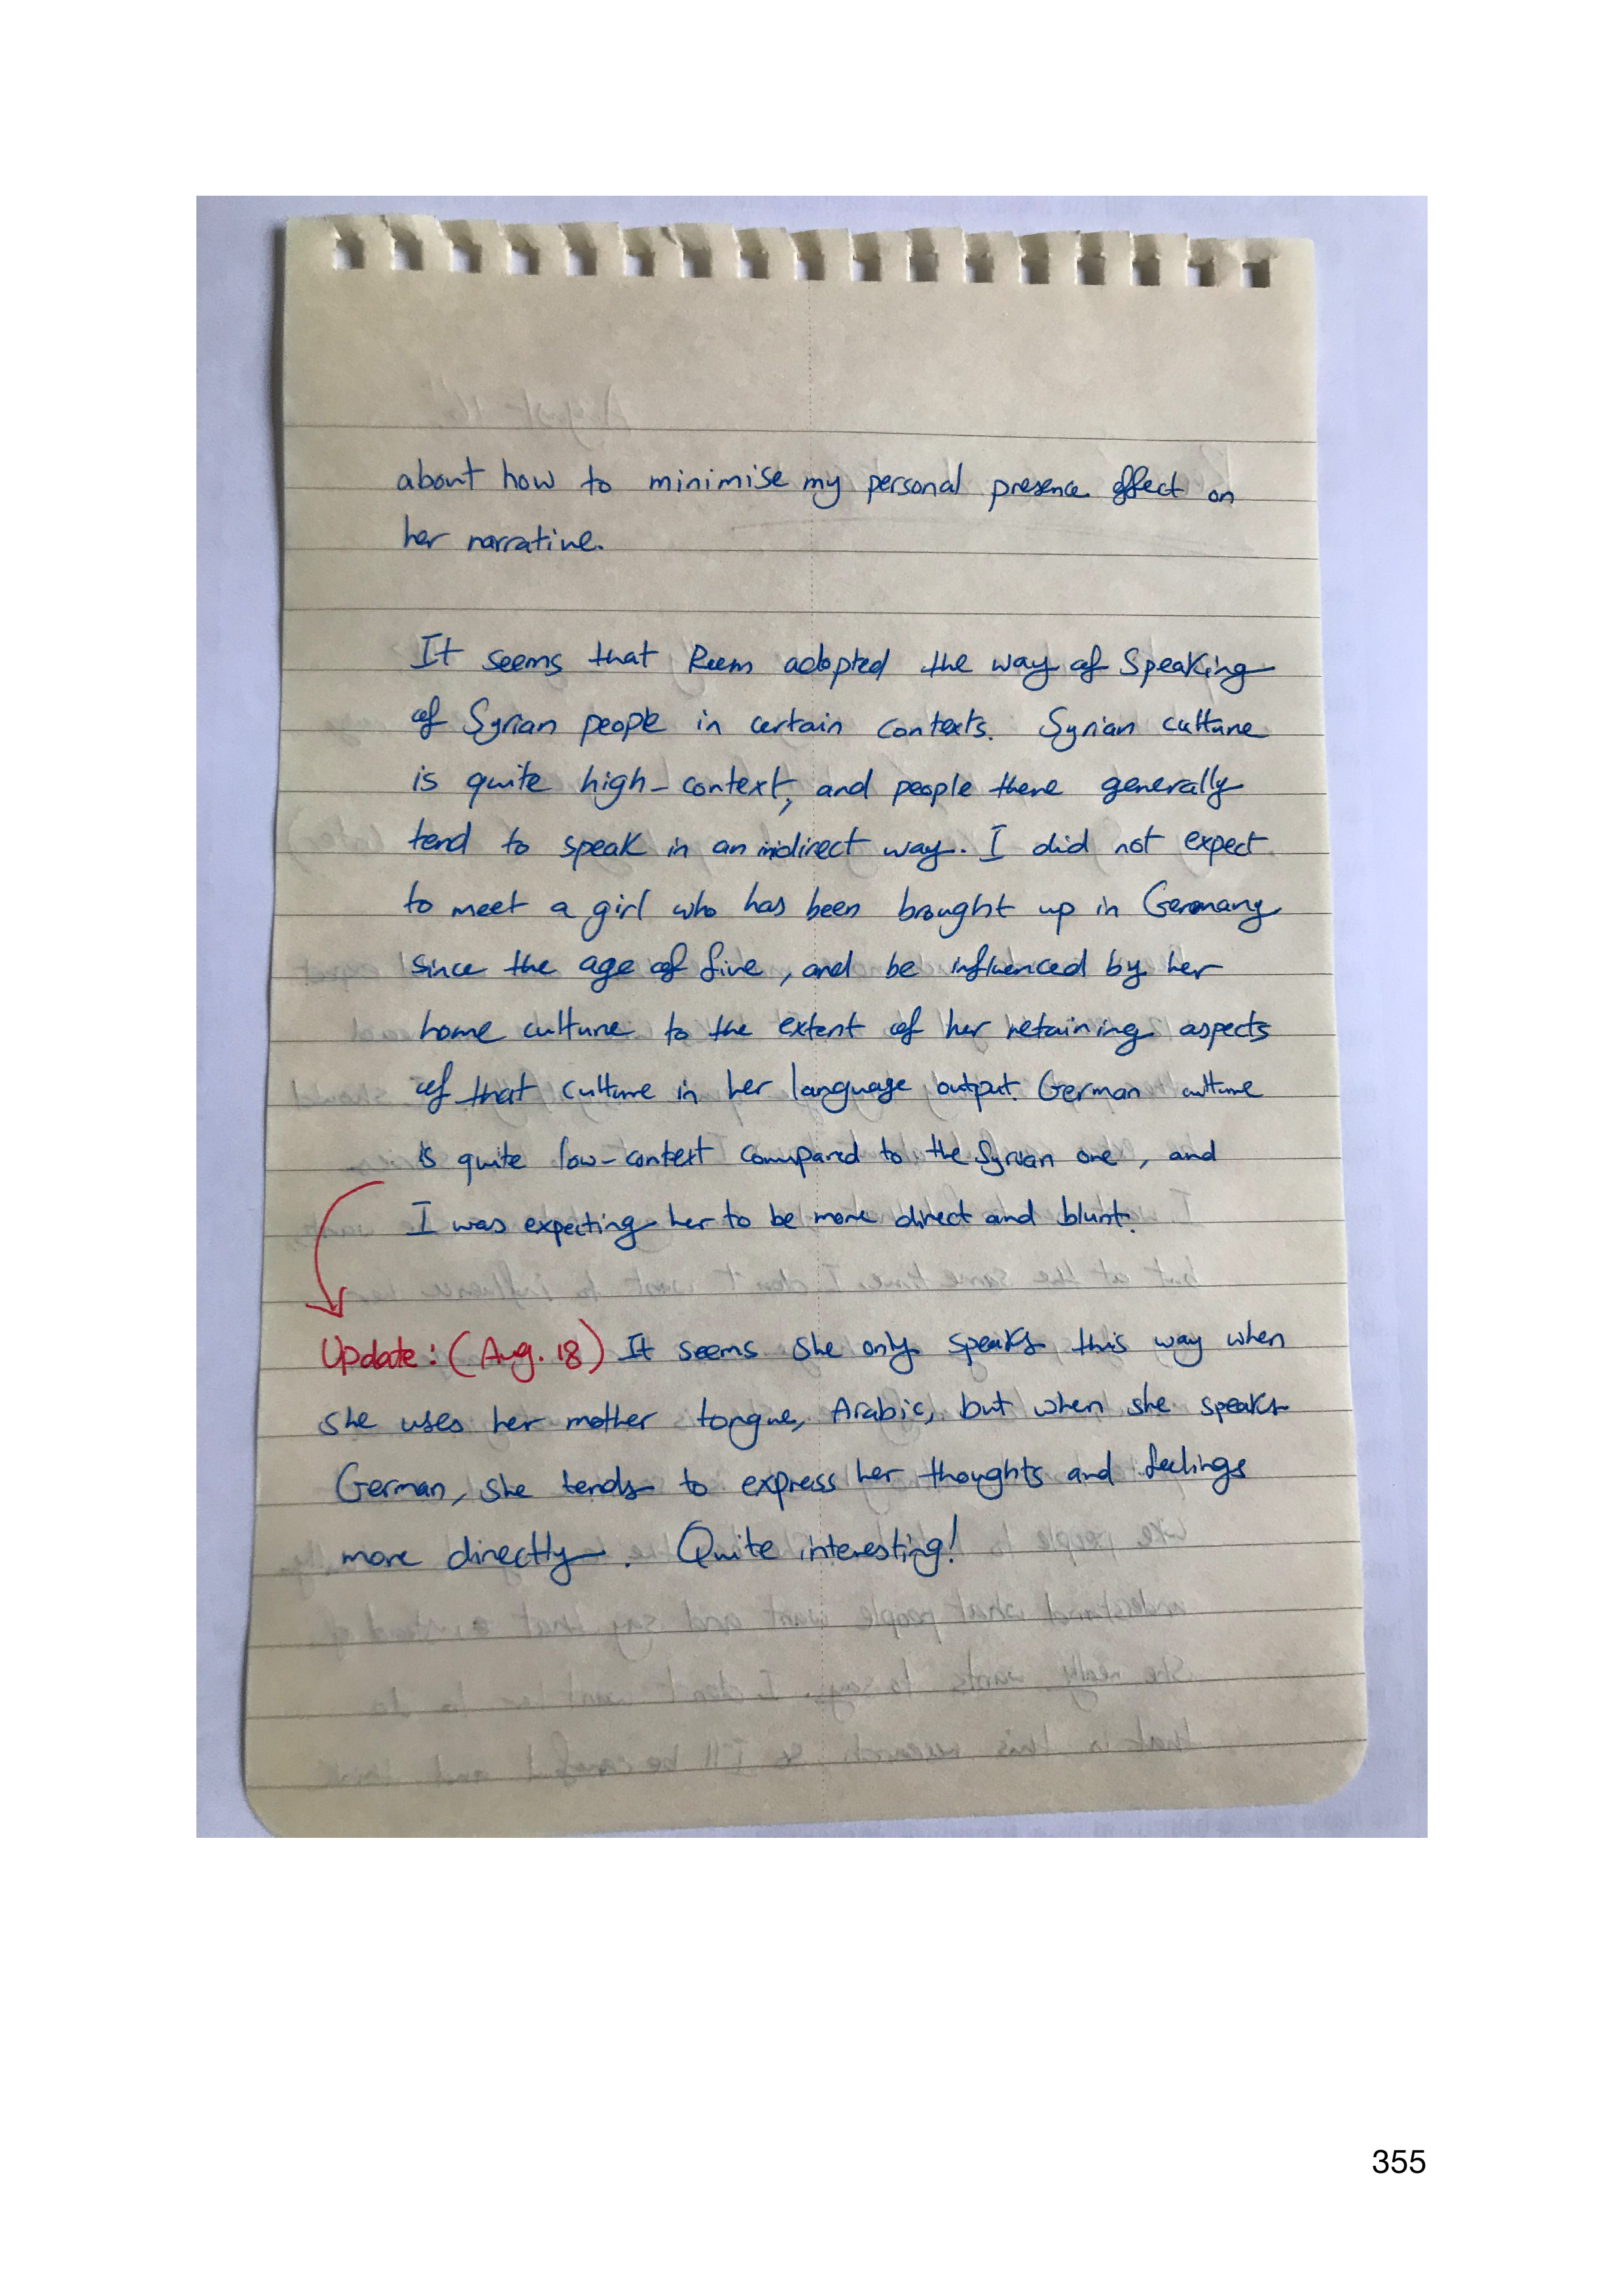 about how to minimise my personal presence effect on
her narrative.
It seems that Reem adopted the way of speaking
of Syrian people in certain contexts. Syrian culture
is quite high-context, and people there generally
tend to speak in an indirect way. I did not expect
to meet a girl who has been brought up in Germany
since the age of five, and be influenced by her
home culture to the extent of her retaining aspects
of that culture in her language output. German culture
is quite low-context compared to the Syrian one, and
I was expecting her to be more direct and blunt.
Update: (Aug. 18) It seems she only speaks this way when
she uses her mother tongue, Arabic, but when she speaks
German, she tends to express her thoughts and feelings
more directly. Quite interesting!
355